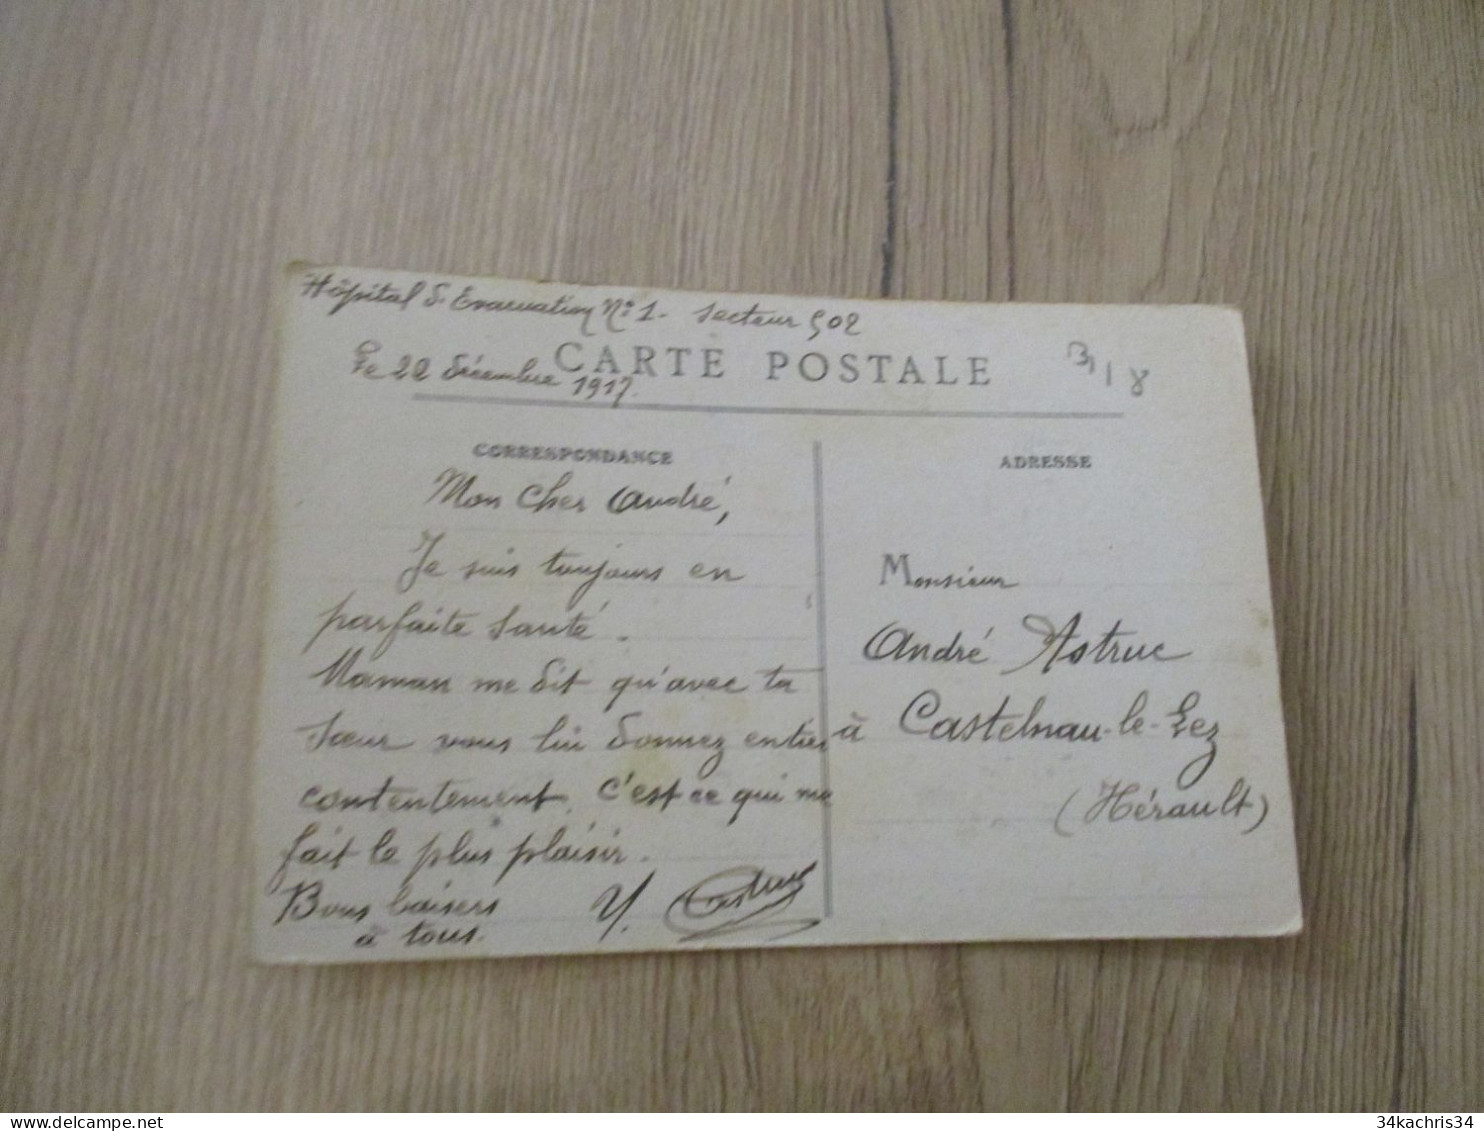 Hôpital d'Evacuation N° 1 - secteur 502
Le 22 décembre 1917.
CARTE POSTALE
CORRESPONDANCE
Mon cher André,
Je suis toujours en
parfaite santé.
Maman me dit qu'avec ta
sœur vous lui donnez entier
contentement. C'est ce qui me
fait le plus plaisir.
Bons baisers
à tous.
Y. Astruc
ADRESSE
Monsieur
André Astruc
à Castelnau-le-Lez
(Hérault)
34kachris34